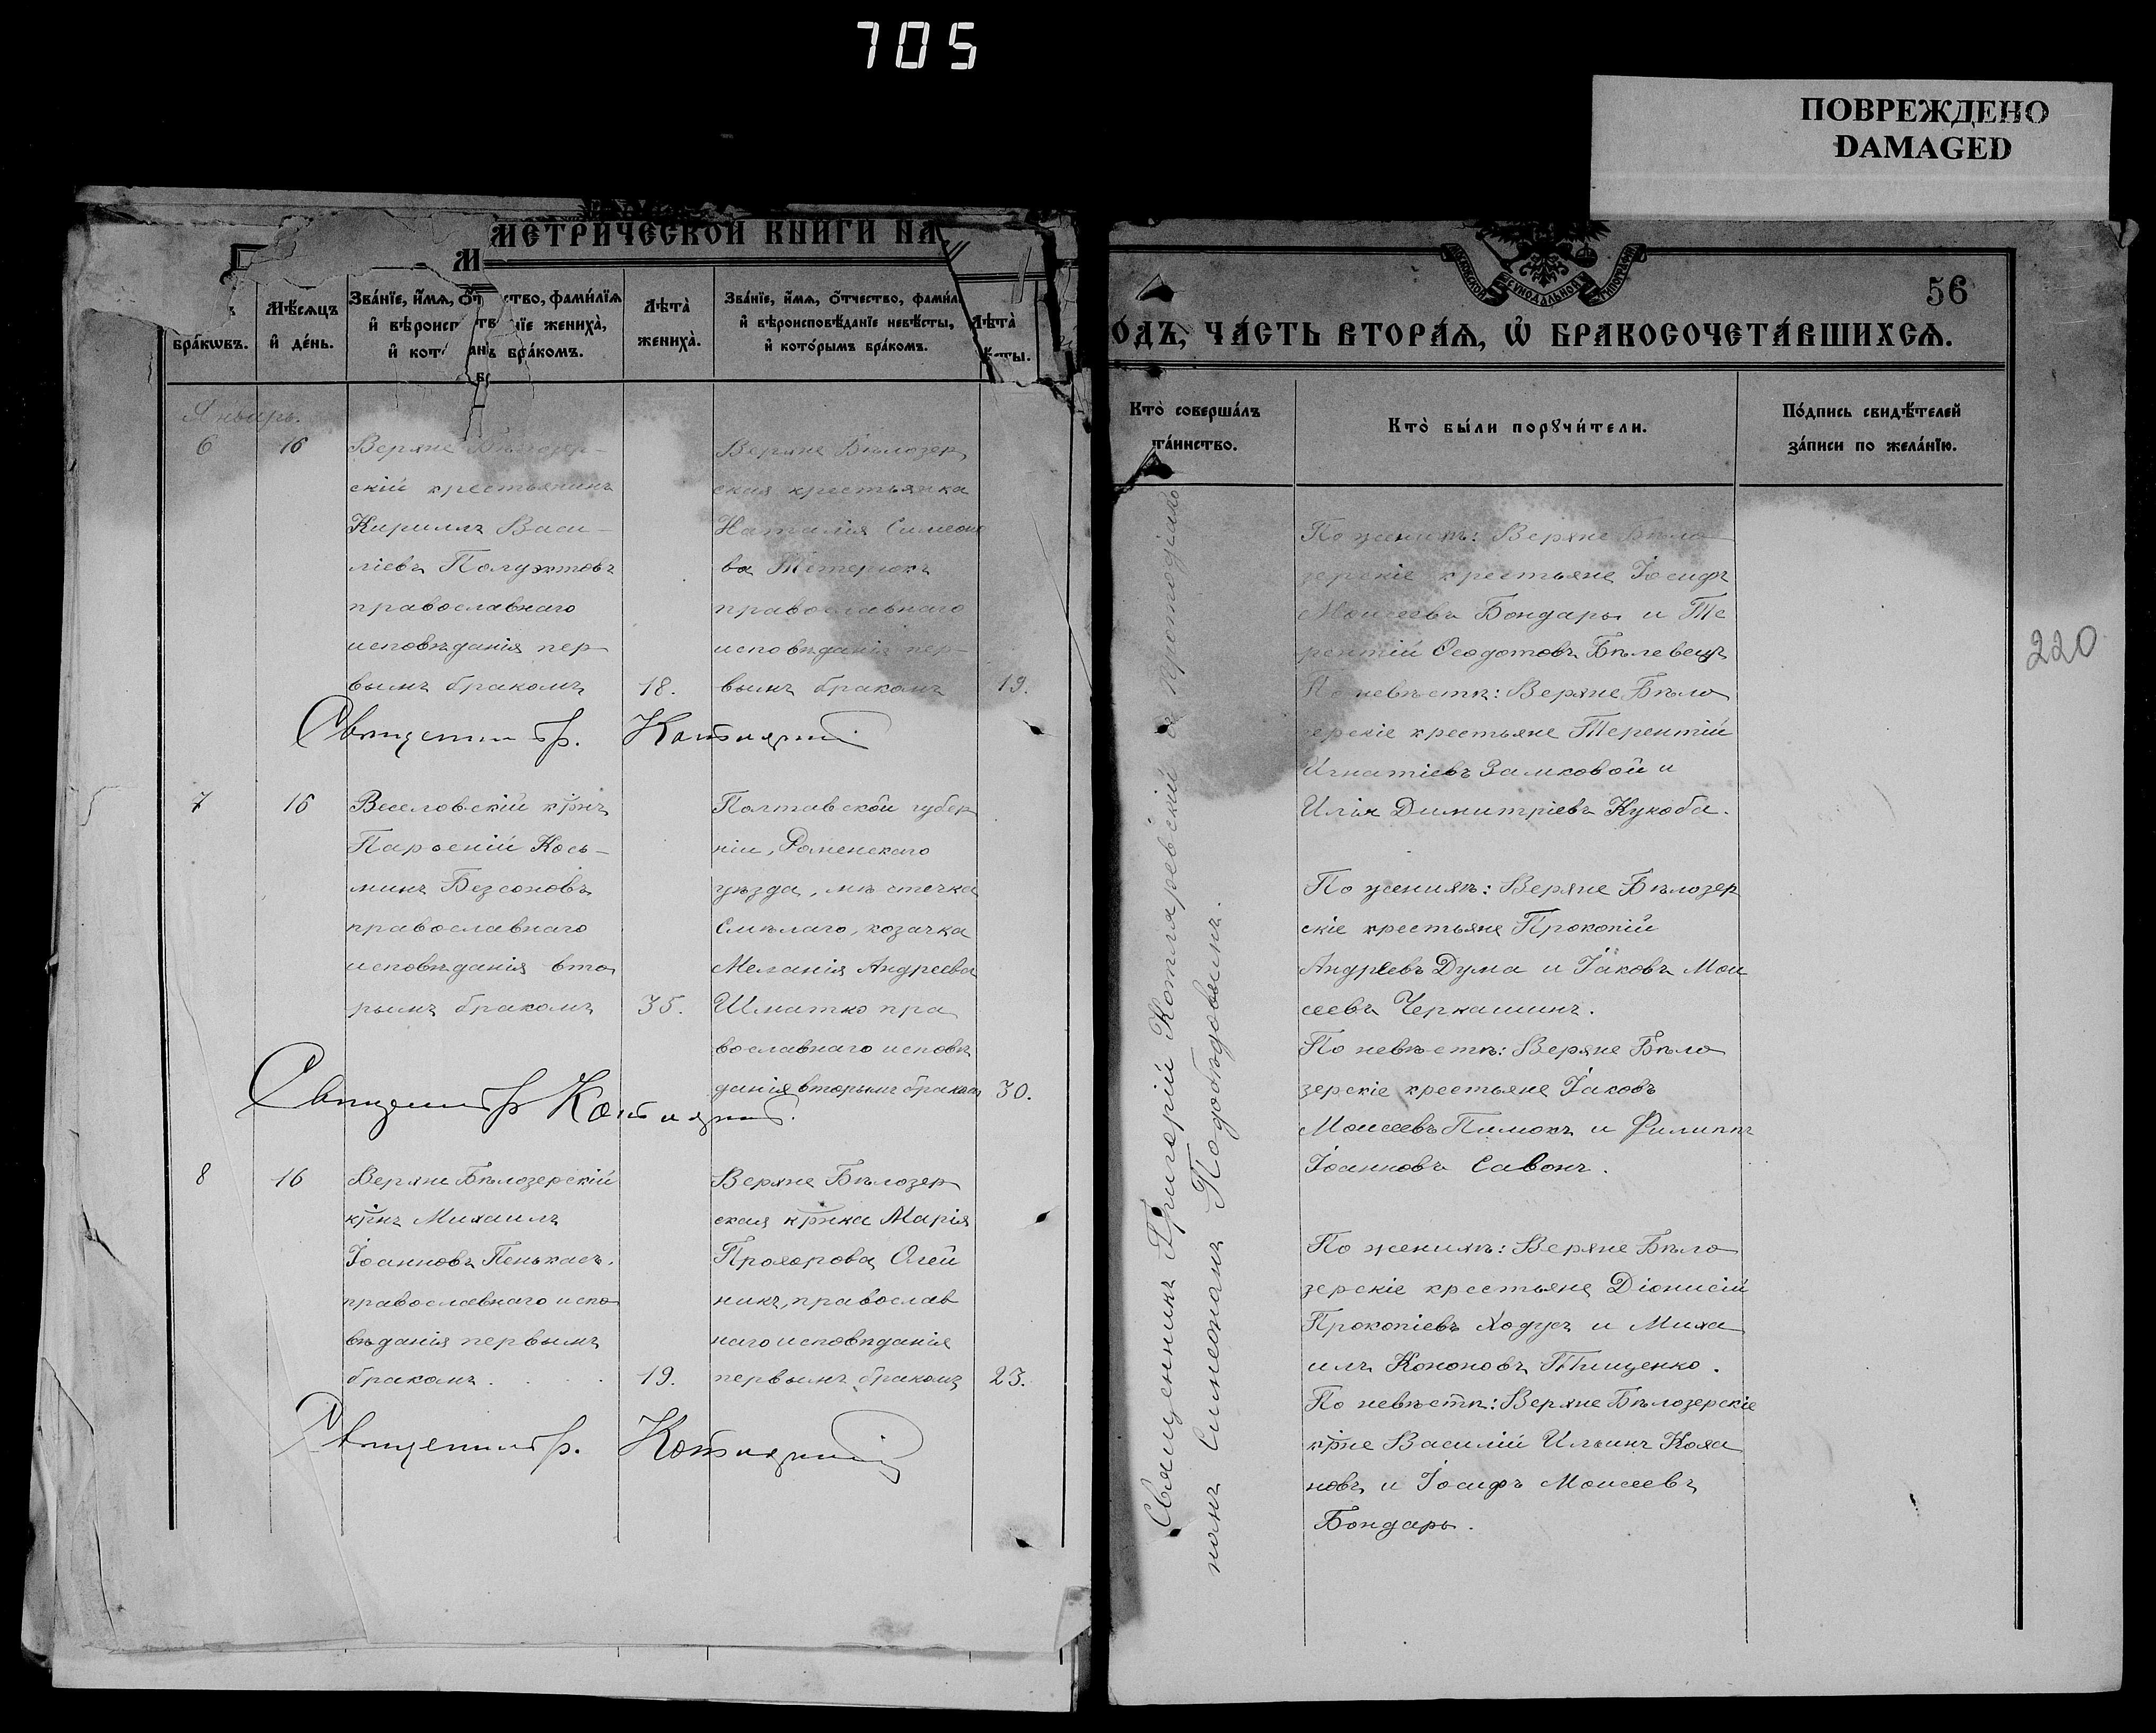 705
ПОВРЕЖДЕНО
DAMAGED
МЕТРИЧЕСКОЙ КНИГИ НА
М
бра́кωвъ.
Мѣ́сѧцъ
и҆ де́нь.
Зва́нїе, и҆́мѧ, ство, фами́лїѧ
и҆ вѣроисп нїе жениха̀,
и҆ кот бра́комъ.
Лѣ́та̀
жениха̀.
Зва́нїе, и҆́мѧ, о҆́тчество, фами́л
и҆ вѣроисповѣ́данїе невѣ́сты,
и҆ кото́рымъ бра́комъ.
Лѣ́та̀
ѣ́сты.
Январь.
6
16
Верхне Бѣлозер-
скій крестьянинъ
Кириллъ Васи-
ліевъ Полуэктовъ
православнаго
исповѣданія пер-
вымъ бракомъ
18.
Верхне Бѣлозер
ская крестьянка
Наталія Симеоно
ва Тетерюкъ
православнаго
исповѣданія пер-
вымъ бракомъ
19.
Священникъ Гр. Котляревскій
7
16
Веселовскій кр̃нъ
Парѳеній Кось-
минъ Безсоновъ
православнаго
исповѣданія вто
рымъ бракомъ
35.
Полтавской губер
ніи, Роменскаго
уѣзда, мѣстечка
Смѣлаго, козачка
Меланія Андреева
Шматко пра
вославнаго исповѣ
данія вторымъ бракомъ
30.
Священникъ Гр. Котляревскій
8
16
Верхне Бѣлозерскій
кр̃нъ Михаилъ
Іоанновъ Пенькасъ.
православнаго испо
вѣданія первымъ
бракомъ.
19.
Верхне Бѣлозер
ская кр̃нка Марія
Прохорова Олей
никъ, православ
наго исповѣданія
первымъ бракомъ
23.
Священникъ Гр. Котляревскій
56
ОДЪ, ЧА́СТЬ ВТОРА́Ѧ, Ѽ БРАКОСОЧЕТА́ВШИХСѦ.
Кто̀ соверша́лъ
та́инство.
Кто̀ бы́ли порꙋчи́тели.
По́дпись свидѣ́телей
за́писи по жела́нїю.
Священникъ Григорій Котляревскій съ протодіако
номъ Симеономъ Подобѣдовымъ.
По женихѣ: Верхне Бѣло
зерскіе крестьяне Іосифъ
Моисеевъ Бондарь и Те
рентій Ѳеодотовъ Бѣлевецъ
По невѣстѣ: Верхне Бѣло
зерскіе крестьяне Терентій
Игнатіевъ Замковой и
Илія Димитріевъ Кукоба.
По женихѣ: Верхне Бѣлозер
скіе крестьяне Прокопій
Андреевъ Дума и Іаковъ Мои
сеевъ Черкашинъ.
По невѣстѣ: Верхне Бѣло
зерскіе крестьяне Іаковъ
Моисеевъ Пимокъ и Филиппъ
Іоанновъ Савонъ.
По женихѣ: Верхне Бѣло
зерскіе крестьяне Діонисій
Прокопіевъ Ходусъ и Миха
илъ Кононовъ Тищенко.
По невѣстѣ: Верхне Бѣлозерскіе
кр̃не Василій Ильинъ Коха
новъ и Іосифъ Моисеевъ
Бондарь.
220